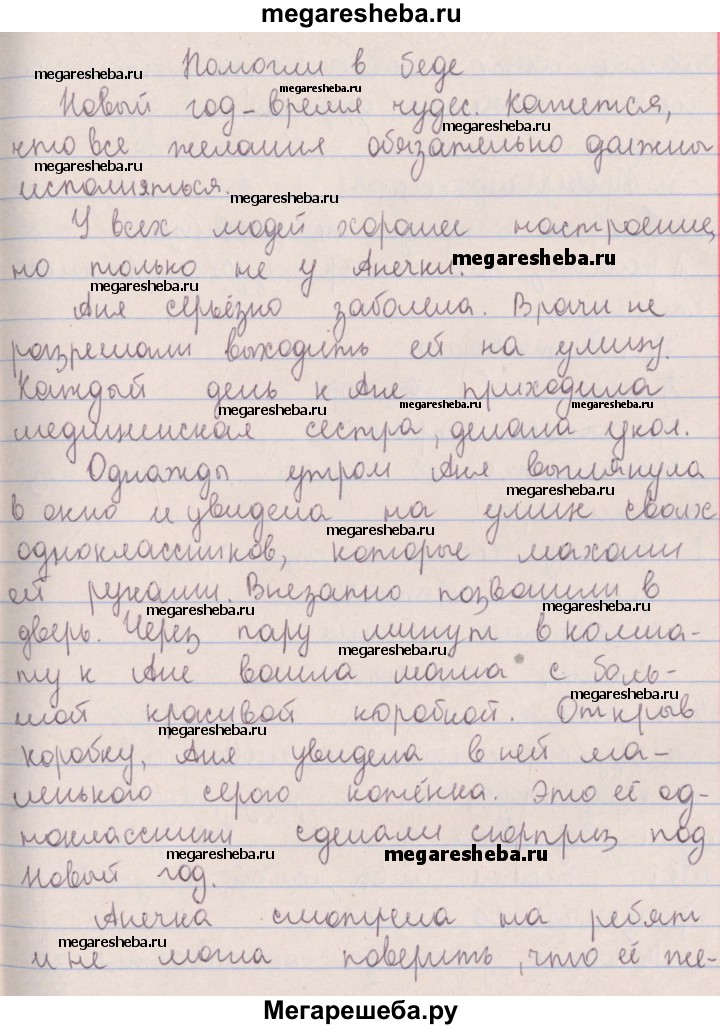 megaresheba.ru
Помогли в беде
Новый год - время чудес. Кажется,
что все желания обязательно должны
исполняться.
У всех людей хорошее настроение,
но только не у Анечки.
Аня серьёзно заболела. Врачи не
разрешали выходить ей на улицу.
Каждый день к Ане приходила
медицинская сестра, делала укол.
Однажды утром Аня выглянула
в окно и увидела на улице своих
одноклассников, которые махали
ей руками. Внезапно позвонили в
дверь. Через пару минут в комна-
ту к Ане вошла мама с боль-
шой красивой коробкой. Открыв
коробку, Аня увидела в ней ма-
ленького серого котёнка. Это её од-
ноклассники сделали сюрприз под
Новый год.
Анечка смотрела на ребят
и не могла поверить, что её же-
Мегарешеба.ру